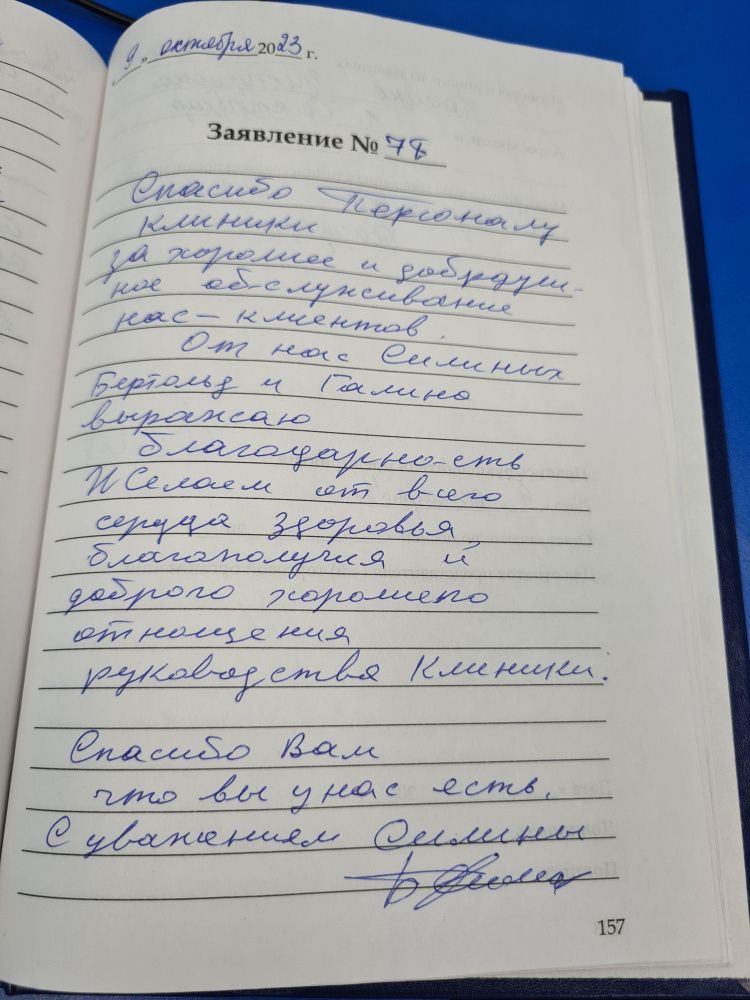 „9" октября 2023 г.
Заявление № 78
Спасибо Персоналу
клиники
за хорошее и добродуш-
ное об-служивание
нас – клиентов.
От нас Силиных
Бертольд и Галина
выражаю
благодарно-сть
И Селаем от всего
сердца здоровья,
благополучия и
доброго хорошего
отношения
руководства Клиники.
Спасибо Вам
что вы у нас есть.
С уважением Силины
157